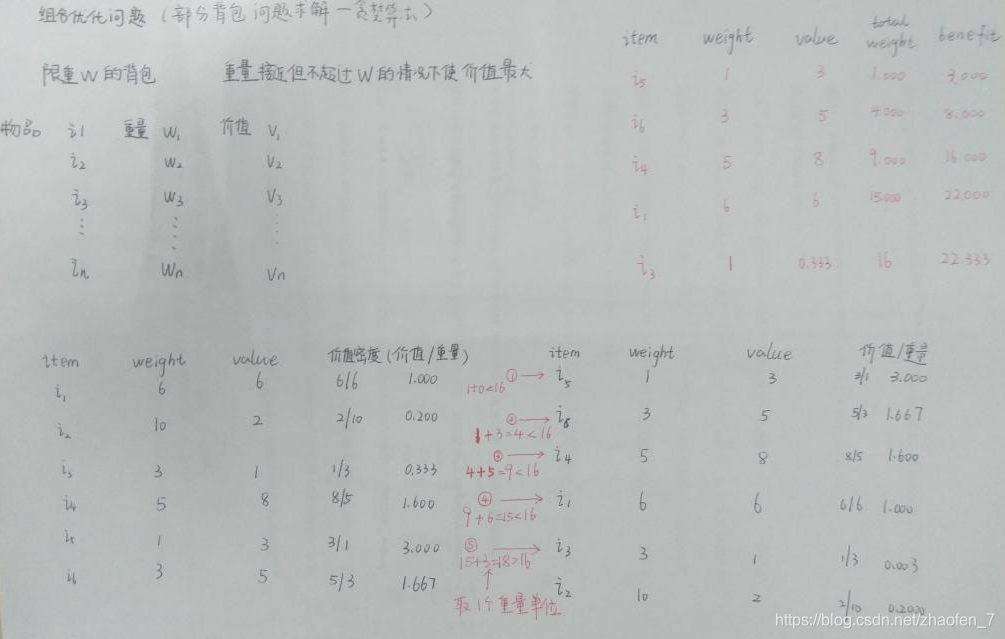 组合优化问题（部分背包问题求解—贪婪算法）
限重W的背包 重量接近但不超过W的情况下使价值最大
物品 i1 重量 W₁ 价值 V₁
i2 W₂ V₂
i3 W3 V3
⋮ ⋮ ⋮
in Wn Vn
item weight value total weight benefit
i5 1 3 1.000 3.000
i6 3 5 4.000 8.000
i4 5 8 9.000 16.000
i1 6 6 15.000 22.000
i3 1 0.333 16 22.333
item weight value 价值密度(价值/重量)
i1 6 6 6/6 1.000
i2 10 2 2/10 0.200
i3 3 1 1/3 0.333
i4 5 8 8/5 1.600
i5 1 3 3/1 3.000
i6 3 5 5/3 1.667
item weight value 价值/重量
① → i5 1 3 3/1 3.000
1+0<16
② → i6 3 5 5/3 1.667
1+3=4<16
③ → i4 5 8 8/5 1.600
4+5=9<16
④ → i1 6 6 6/6 1.000
9+6=15<16
⑤ → i3 3 1 1/3 0.003
15+3=18>16
↑
取1个重量单位
i2 10 2 2/10 0.2000
https://blog.csdn.net/zhaofen_7